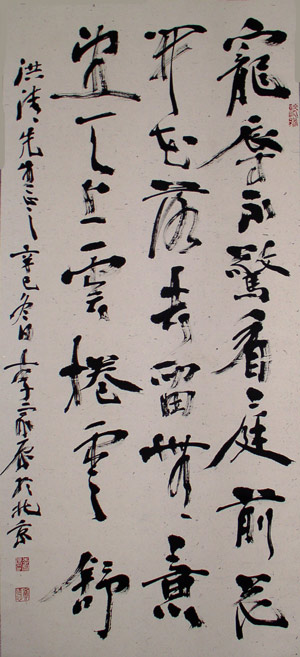 寵辱不驚看庭前花
開花落去留無意
望天上雲捲雲舒
先生正之 辛巳冬日 李 於北京